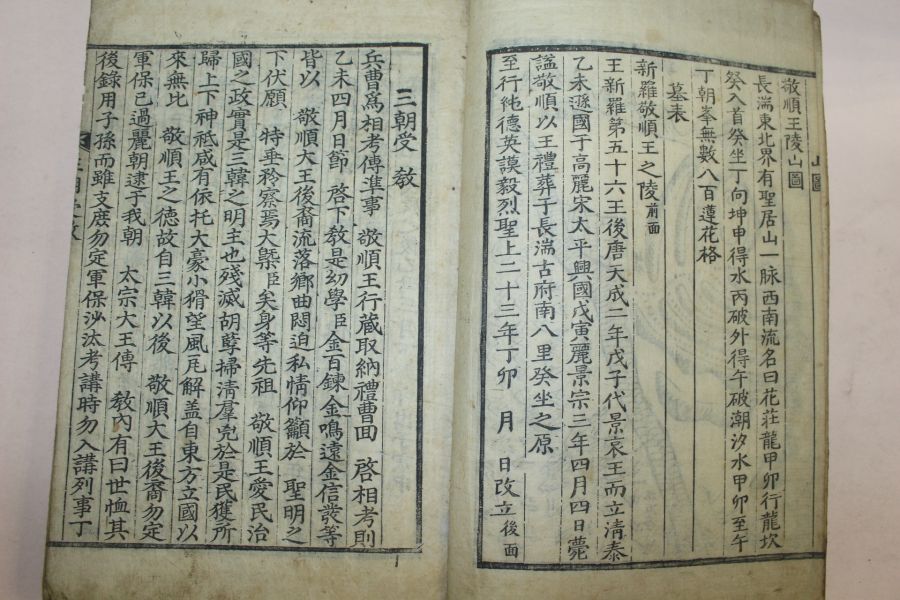 敬順王陵山圖
長湍東北界有聖居山一脉西南流名曰花莊龍甲卯行龍坎
癸入首癸坐丁向坤申得水丙破外得午破潮汐水甲卯至午
丁朝峯無數八百蓮花格
墓表
新羅敬順王之陵 前面
王新羅第五十六王後唐天成二年戊子代景哀王而立清泰
乙未遜國于高麗宋太平興國戊寅麗景宗三年四月四日薨
謚敬順以王禮葬于長湍古府南八里癸坐之原
至行純德英謨毅烈聖上二十三年丁卯 月 日改立 後面
三朝受 敎
兵曹爲相考傳準事 敬順王行蔵取納禮曹回 啓相考則
乙未四月日節 啓下敎是幼學臣金百鍊金鳴遠金信裳等
皆以 敬順大王後裔流落鄉曲悶迫私情仰籲於 聖明之
下伏願 特垂矜察焉大槩臣矣身等先祖 敬順王愛民治
國之政實是三韓之明主也殘滅胡孽掃清羣兇於是民獲所
歸上下神祗咸有依托大豪小猾望風瓦解盖自東方立國以
來無比 敬順王之德故自三韓以後 敬順大王後裔勿定
軍保已過麗朝逮于我朝 太宗大王傳 敎內有曰世恤其
後錄用子孫而雖支庶勿定軍保沙汰考講時勿入講列事丁